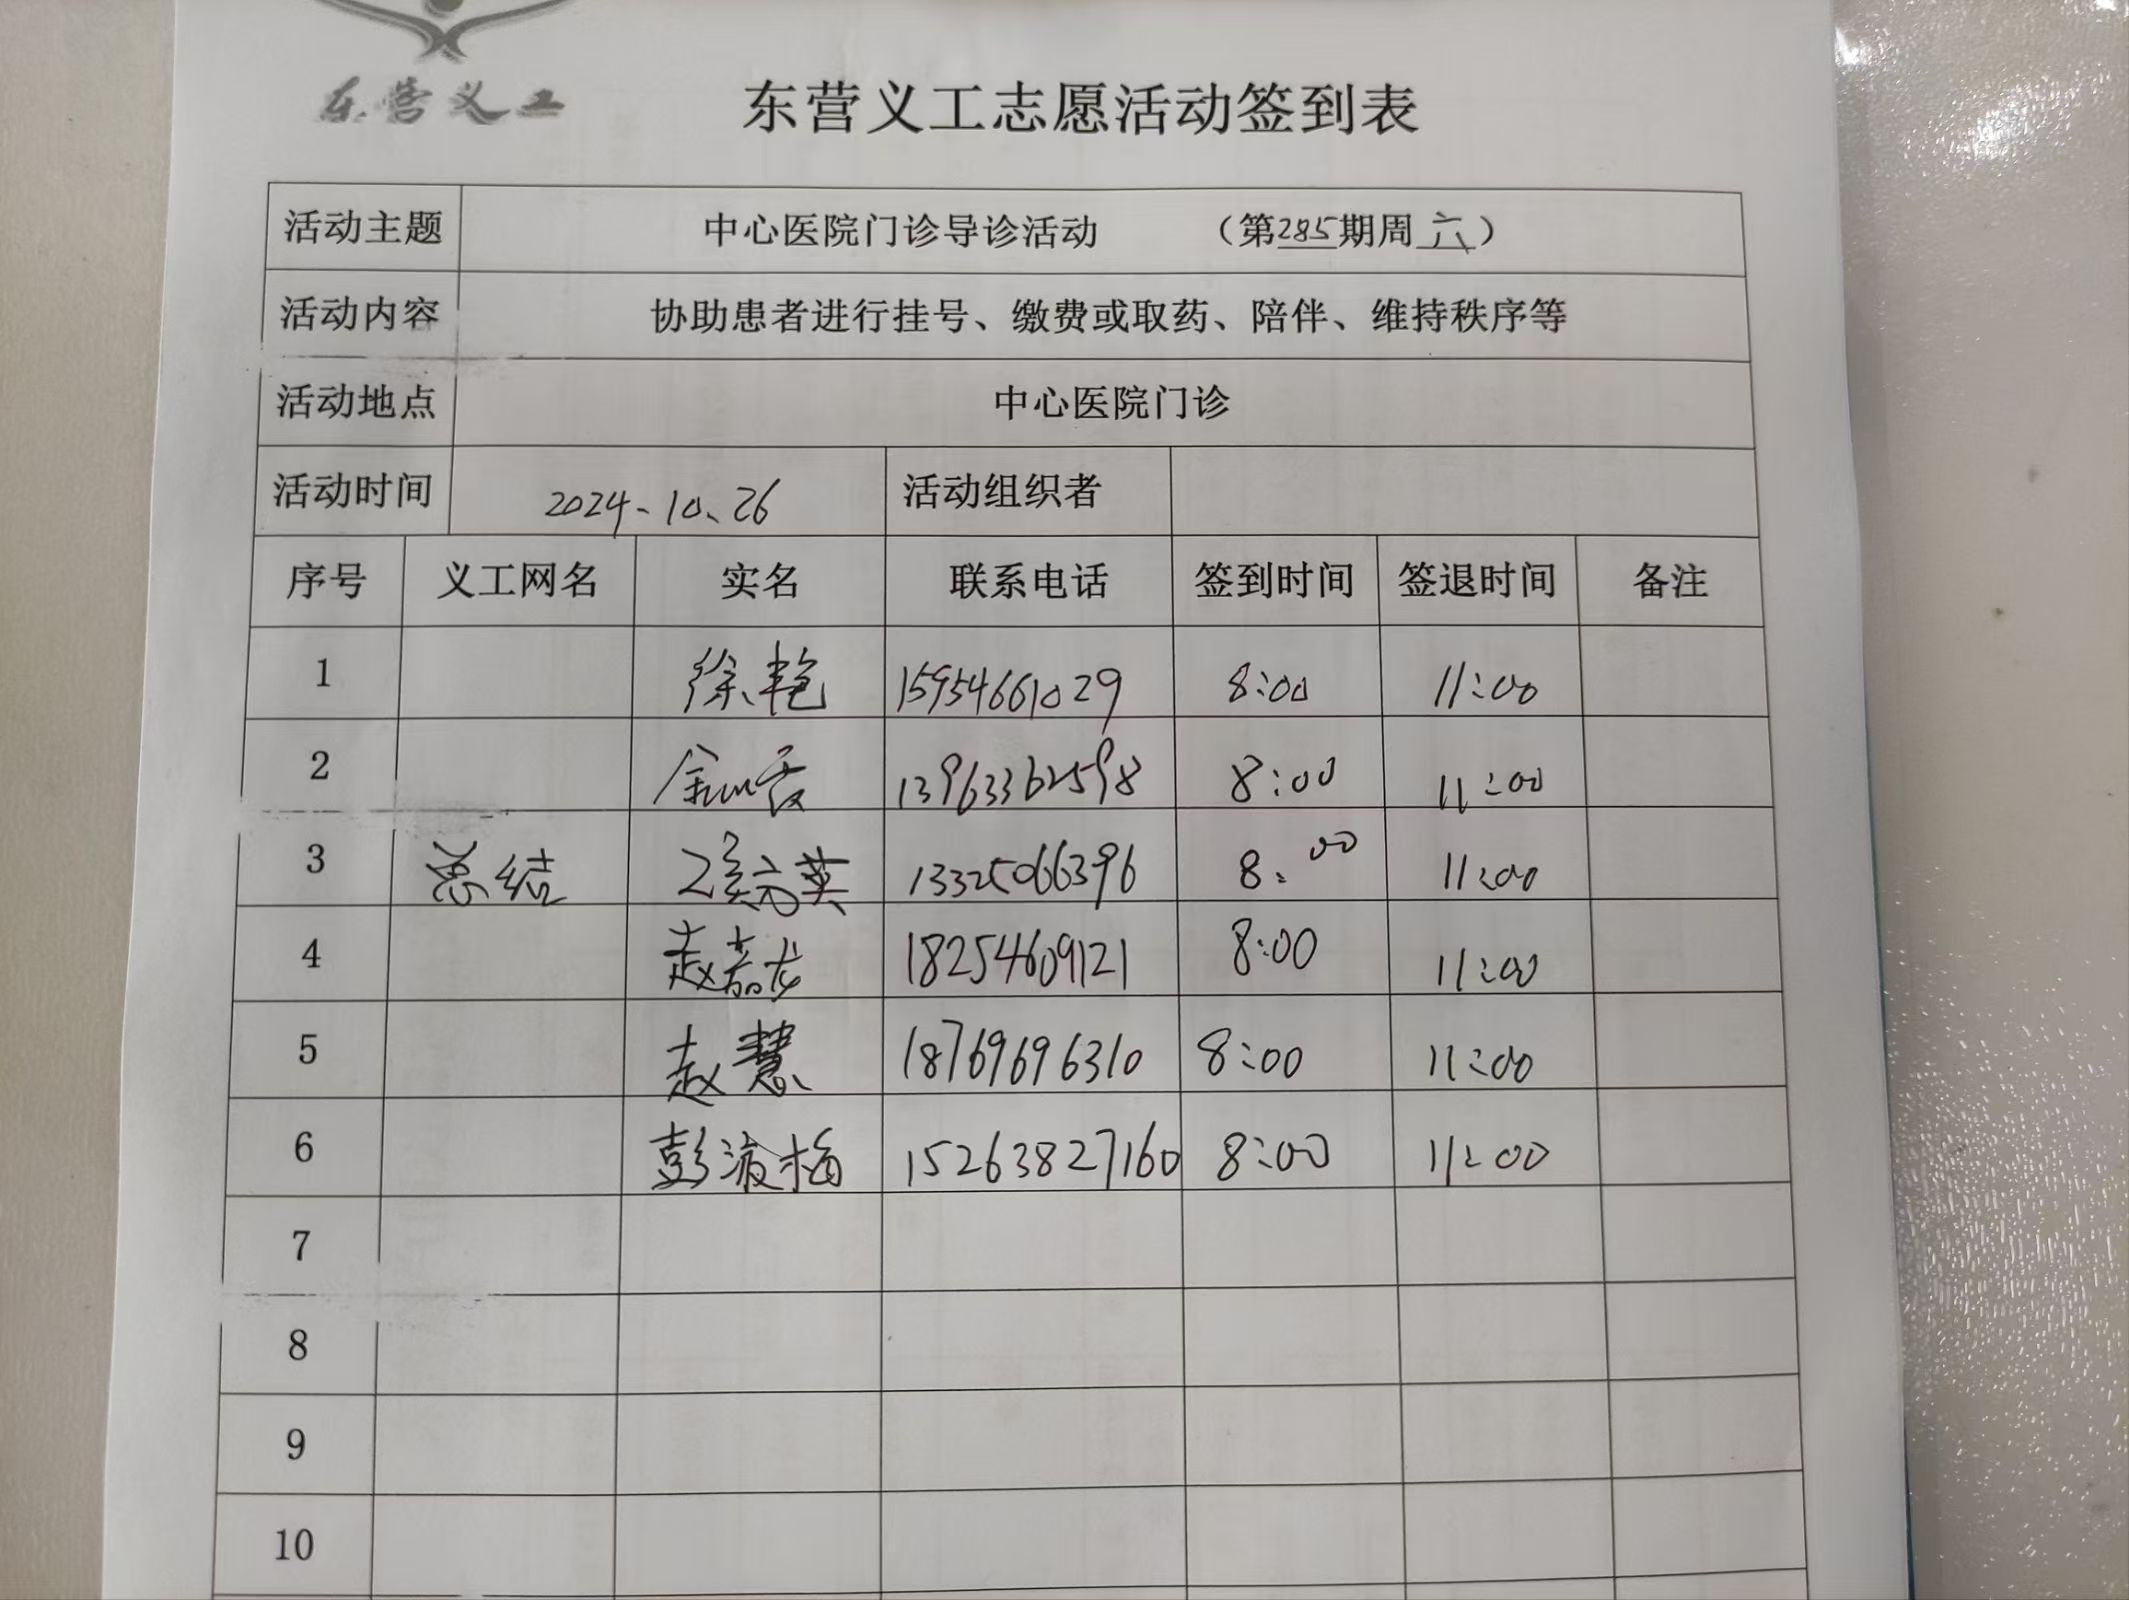 东营义工
东营义工志愿活动签到表
活动主题 中心医院门诊导诊活动 （第285期周六）
活动内容 协助患者进行挂号、缴费或取药、陪伴、维持秩序等
活动地点 中心医院门诊
活动时间 2024.10.26 活动组织者
序号 义工网名 实名 联系电话 签到时间 签退时间 备注
1 徐艳 15954661029 8:00 11:00
2 13963362598 8:00 11:00
3 总结 英 13325066396 8:00 11:00
4 赵 18254609121 8:00 11:00
5 赵慧 18769696310 8:00 11:00
6 彭淑梅 15263827160 8:00 11:00
7
8
9
10